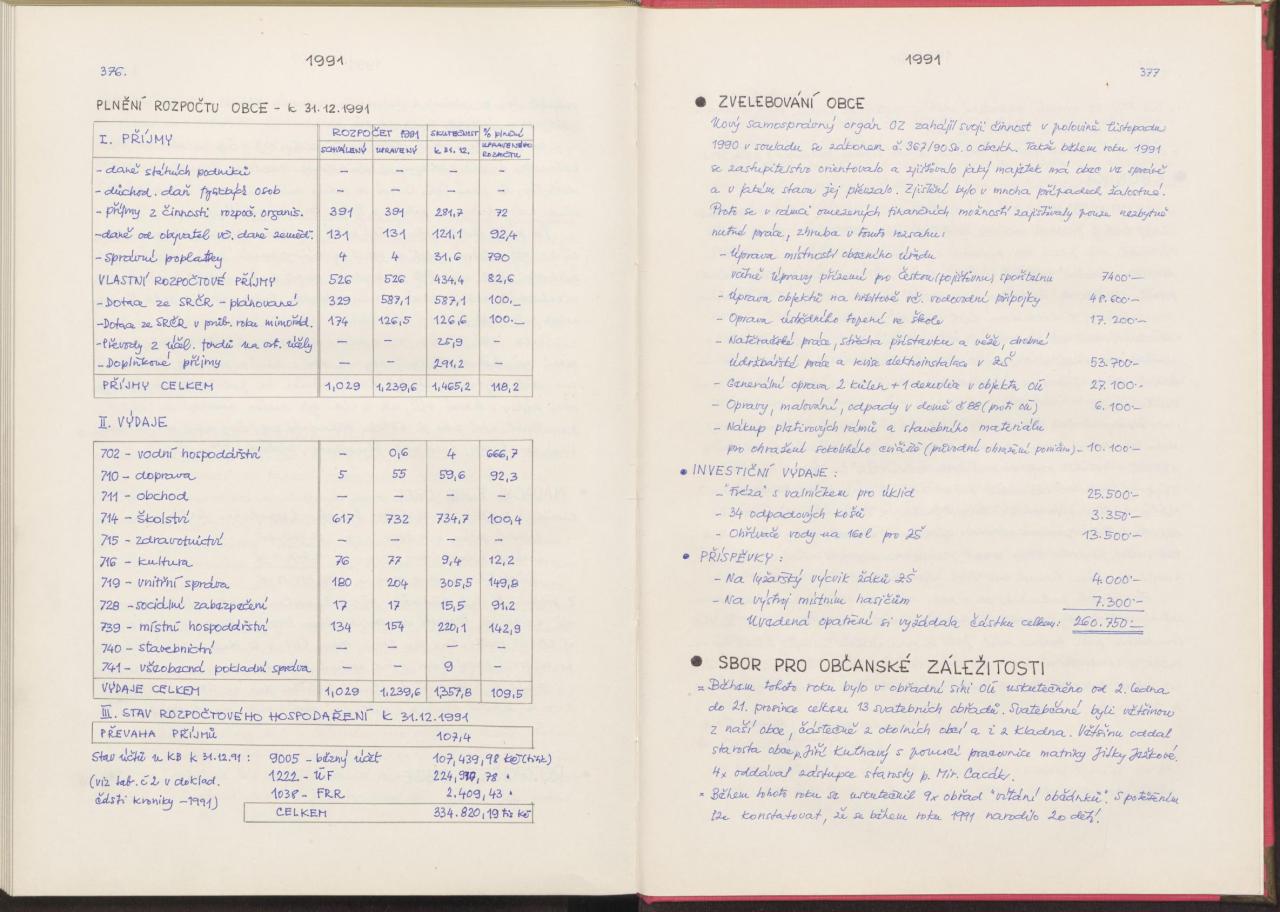 1991
376.
PLNĚNÍ ROZPOČTU OBCE - k 31.12.1991
I. PŘÍJMY ROZPOČET 1991 SKUTEČNOST % plnění
SCHVÁLENÝ UPRAVENÝ k 31.12. UPRAVENÉHO ROZPOČTU
- daně státních podniků — — — —
- důchod. daň fyzických osob — — — —
- příjmy z činnosti rozpoč. organis. 391 391 281,7 72
- daně od obyvatel vč. daně zeměd. 131 131 121,1 92,4
- správní poplatky 4 4 31,6 790
VLASTNÍ ROZPOČTOVÉ PŘÍJMY 526 526 434,4 82,6
- Dotace ze SRČR - plánované 329 587,1 587,1 100.-
- Dotace ze SRČR v průb. roku mimořád. 174 126,5 126,6 100.-
- Převody z účel. fondů na ost. účely — — 25,9 —
- Doplňkové příjmy — — 291,2 —
PŘÍJMY CELKEM 1,029 1,239,6 1,465,2 118,2
II. VÝDAJE
702 - vodní hospodářství — 0,6 4 666,7
710 - doprava 5 55 59,6 92,3
711 - obchod — — — —
714 - školství 617 732 734,7 100,4
715 - zdravotnictví — — — —
716 - kultura 76 77 9,4 12,2
719 - vnitřní správa 180 204 305,5 149,8
728 - sociální zabezpečení 17 17 15,5 91.2
739 - místní hospodářství 134 154 220,1 142,9
740 - stavebnictví — — — —
741 - všeobecná pokladní správa — — 9 —
VÝDAJE CELKEM 1,029 1.239,6 1357,8 109,5
III. STAV ROZPOČTOVÉHO HOSPODAŘENÍ K 31.12.1991
PŘEVAHA PŘÍJMŮ 107,4
Stav účtů u KB k 31.12.91 : 9005 - běžný účet 107,439,98 kčs (tis.k)
(viz tab. č 2 v doklad. 1222 - ÚF 224,970,78 "
části kroniky - 1991) 1038 - FRR 2.409,43 "
CELKEM 334.820,19 tis kč
1991
377
● ZVELEBOVÁNÍ OBCE
Nový samosprávný orgán OZ zahájil svoji činnost v polovině listopadu
1990 v souladu se zákonem č. 367/90 Sb. o obcích. Takže během roku 1991
se zastupitelstvo orientovalo a zjišťovalo jaký majetek má obec ve správě
a v jakém stavu jej převzalo. Zjištění bylo v mnoha případech žalostné.
Proto se v rámci omezených finančních možností zajišťovaly pouze nezbytně
nutné práce, zhruba v tomto rozsahu:
- Úprava místností obecního úřadu
vč. úpravy přízemí pro Českou (pojišťovnu) spořitelnu 7400.-
- Úprava objektů na hřbitově vč. vodovodní přípojky 48.600.-
- Oprava ústředního topení ve škole 17.200.-
- Natěračské práce, střecha přístavku a věže, drobné
údržbářské práce a revize elektroinstalace v ZŠ 53.700.-
- Generální oprava 2 kůlen + 1 demolice v objektu OÚ 27.100.-
- Opravy, malování, odpady v domě č 88 (proti OÚ) 6.100.-
- Nákup pletivových rámů a stavebního materiálu
pro ohražení sokolského cvičiště (původní ohrazení poničeno) - 10.100.-
● INVESTIČNÍ VÝDAJE :
- "Fréza" s valníčkem pro úklid 25.500.-
- 34 odpadových košů 3.350.-
- Ohřívače vody na 160 l pro ZŠ 13.500.-
● PŘÍSPĚVKY :
- Na lyžařský výcvik žáků ZŠ 4.000.-
- Na výstroj místním hasičům 7.300.-
Uvedená opatření si vyžádala částku celkem: 260.750.-
● SBOR PRO OBČANSKÉ ZÁLEŽITOSTI
= Během tohoto roku bylo v obřadní síni OÚ uskutečněno od 2. ledna
do 21. prosince celkem 13 svatebních obřadů. Svatebčané byli většinou
z naší obce, částečně z okolních obcí a i z Kladna. Většinu oddal
starosta obce p. Jiří Kuthavý s pomocí pracovnice matriky Jitky Ježkové.
4x oddával zástupce starosty p. Mir. Cacák.
= Během tohoto roku se uskutečnil 9x obřad "vítání občánků". S potěšením
lze konstatovat, že se během roku 1991 narodilo 20 dětí.